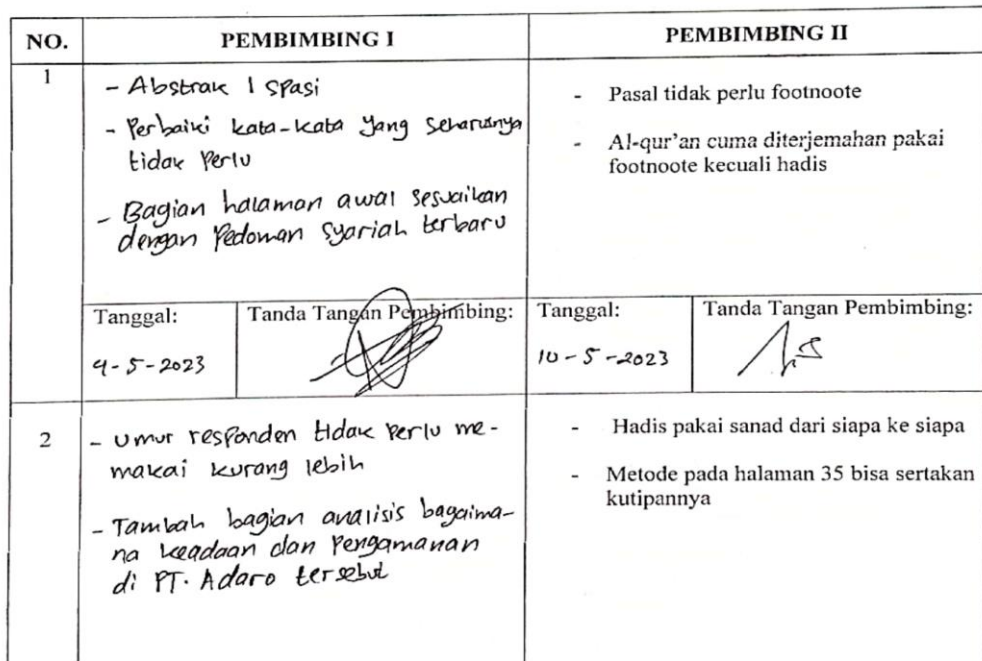 NO.
PEMBIMBING I
PEMBIMBING II
1
- Abstrak 1 spasi
- Perbaiki kata-kata yang seharusnya
tidak perlu
- Bagian halaman awal sesuaikan
dengan Pedoman syariah terbaru
- Pasal tidak perlu footnoote
- Al-qur'an cuma diterjemahan pakai
footnoote kecuali hadis
Tanggal:
9-5-2023
Tanda Tangan Pembimbing:
Tanggal:
10-5-2023
Tanda Tangan Pembimbing:
2
- Umur responden tidak perlu me-
makai kurang lebih
- Tambah bagian analisis bagaima-
na keadaan dan Pengamanan
di PT. Adaro tersebut
- Hadis pakai sanad dari siapa ke siapa
- Metode pada halaman 35 bisa sertakan
kutipannya